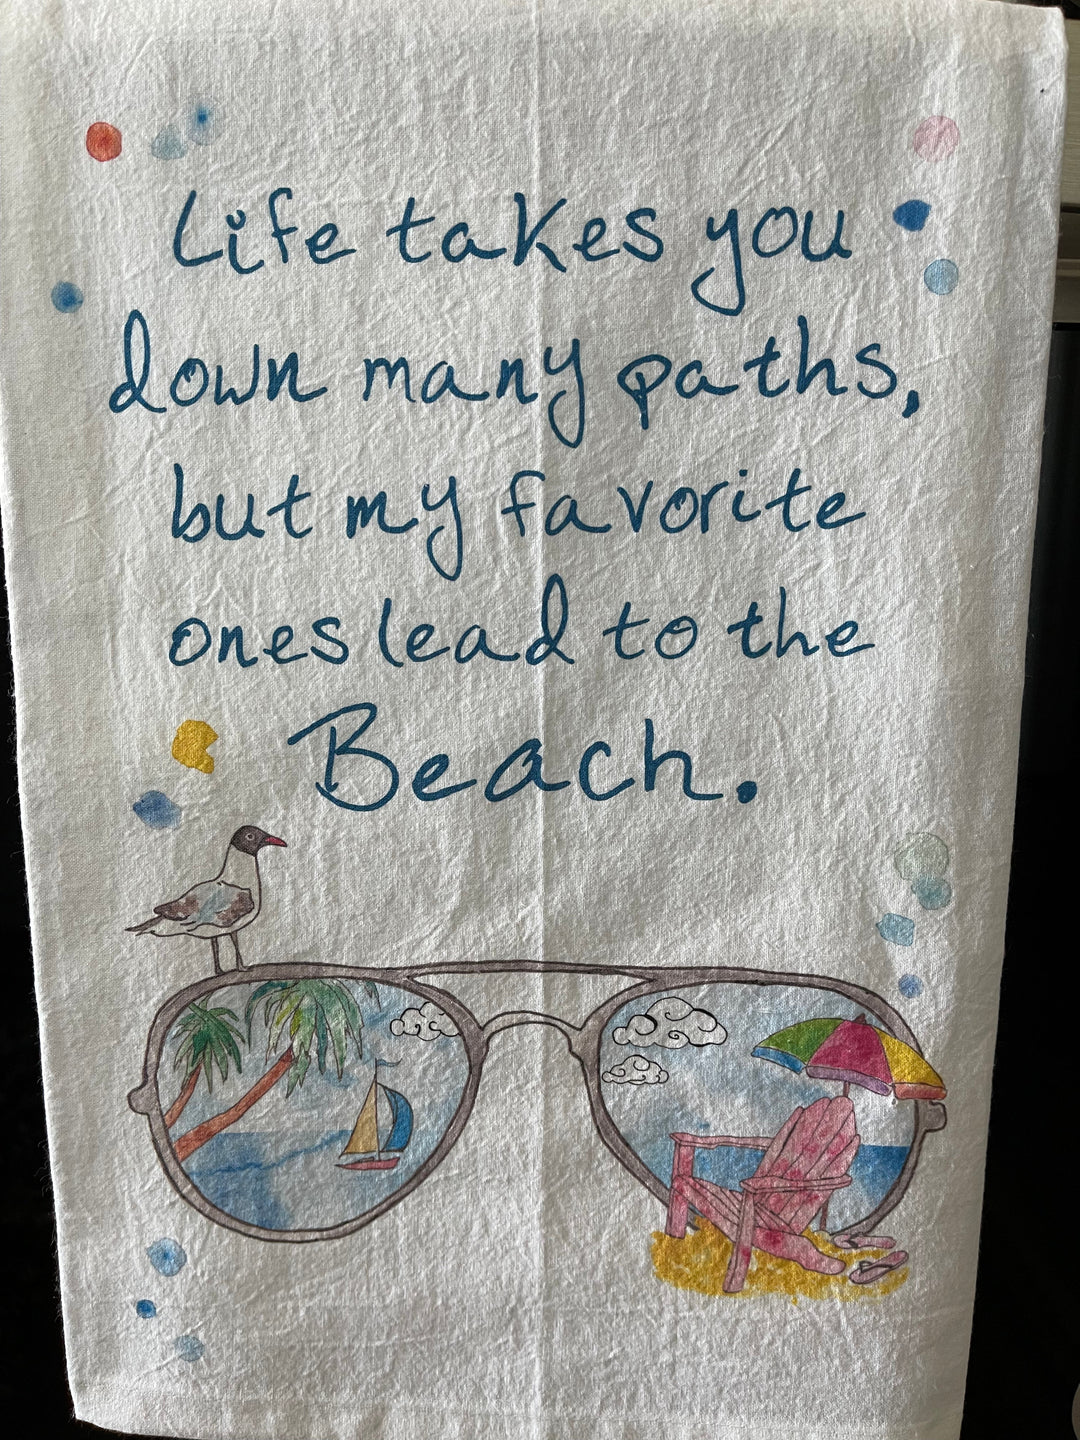 Life takes you
down many paths,
but my favorite
ones lead to the
Beach.